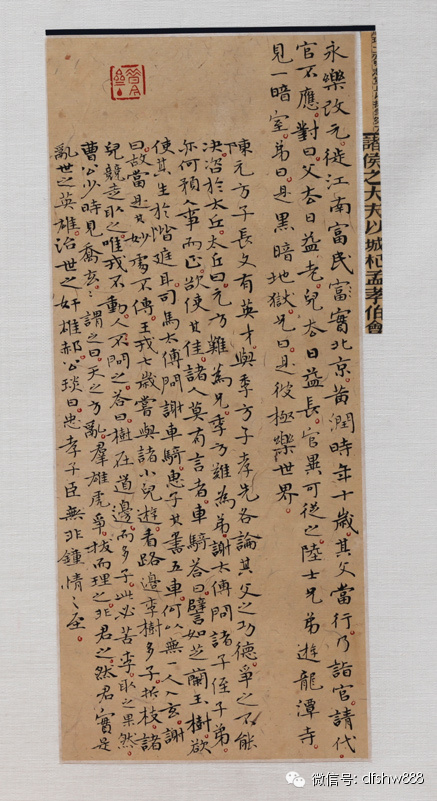 永樂改元徙江南富民富實北京黃潤時年十歲其父當行乃詣官請代
官不應對曰父去日益老兒去日益長官異可從之陸士兄弟遊龍潭寺
見一暗室弟曰是黑暗地獄兄曰是彼極樂世界
陳元方子長文有英才與季方子孝先各論其父之功德爭之不能
決咨於太丘太丘曰元方難為兄季方難為弟謝太傅問諸子侄子弟
亦何預人事而正欲使其佳諸人莫有言者車騎答曰譬如芝蘭玉樹欲
使其生於階庭耳司馬太傅問謝車騎惠子其書五車何以無一人入玄謝
曰故當是其妙處不傳王戎七歲嘗與諸小兒遊看路邊李樹多子折枝諸
兒競走取之唯戎不動人不問之答曰樹在道邊而多子此必苦李取之果然
曹公少時見喬玄玄謂之曰天之方亂羣雄虎爭撥而理之非君之然君實是
亂世之英雄治世之奸雄郝公琰曰忠孝子臣無非鍾情之至
諸侯之大夫以城杞孟孝伯會
微信号: dfshw888